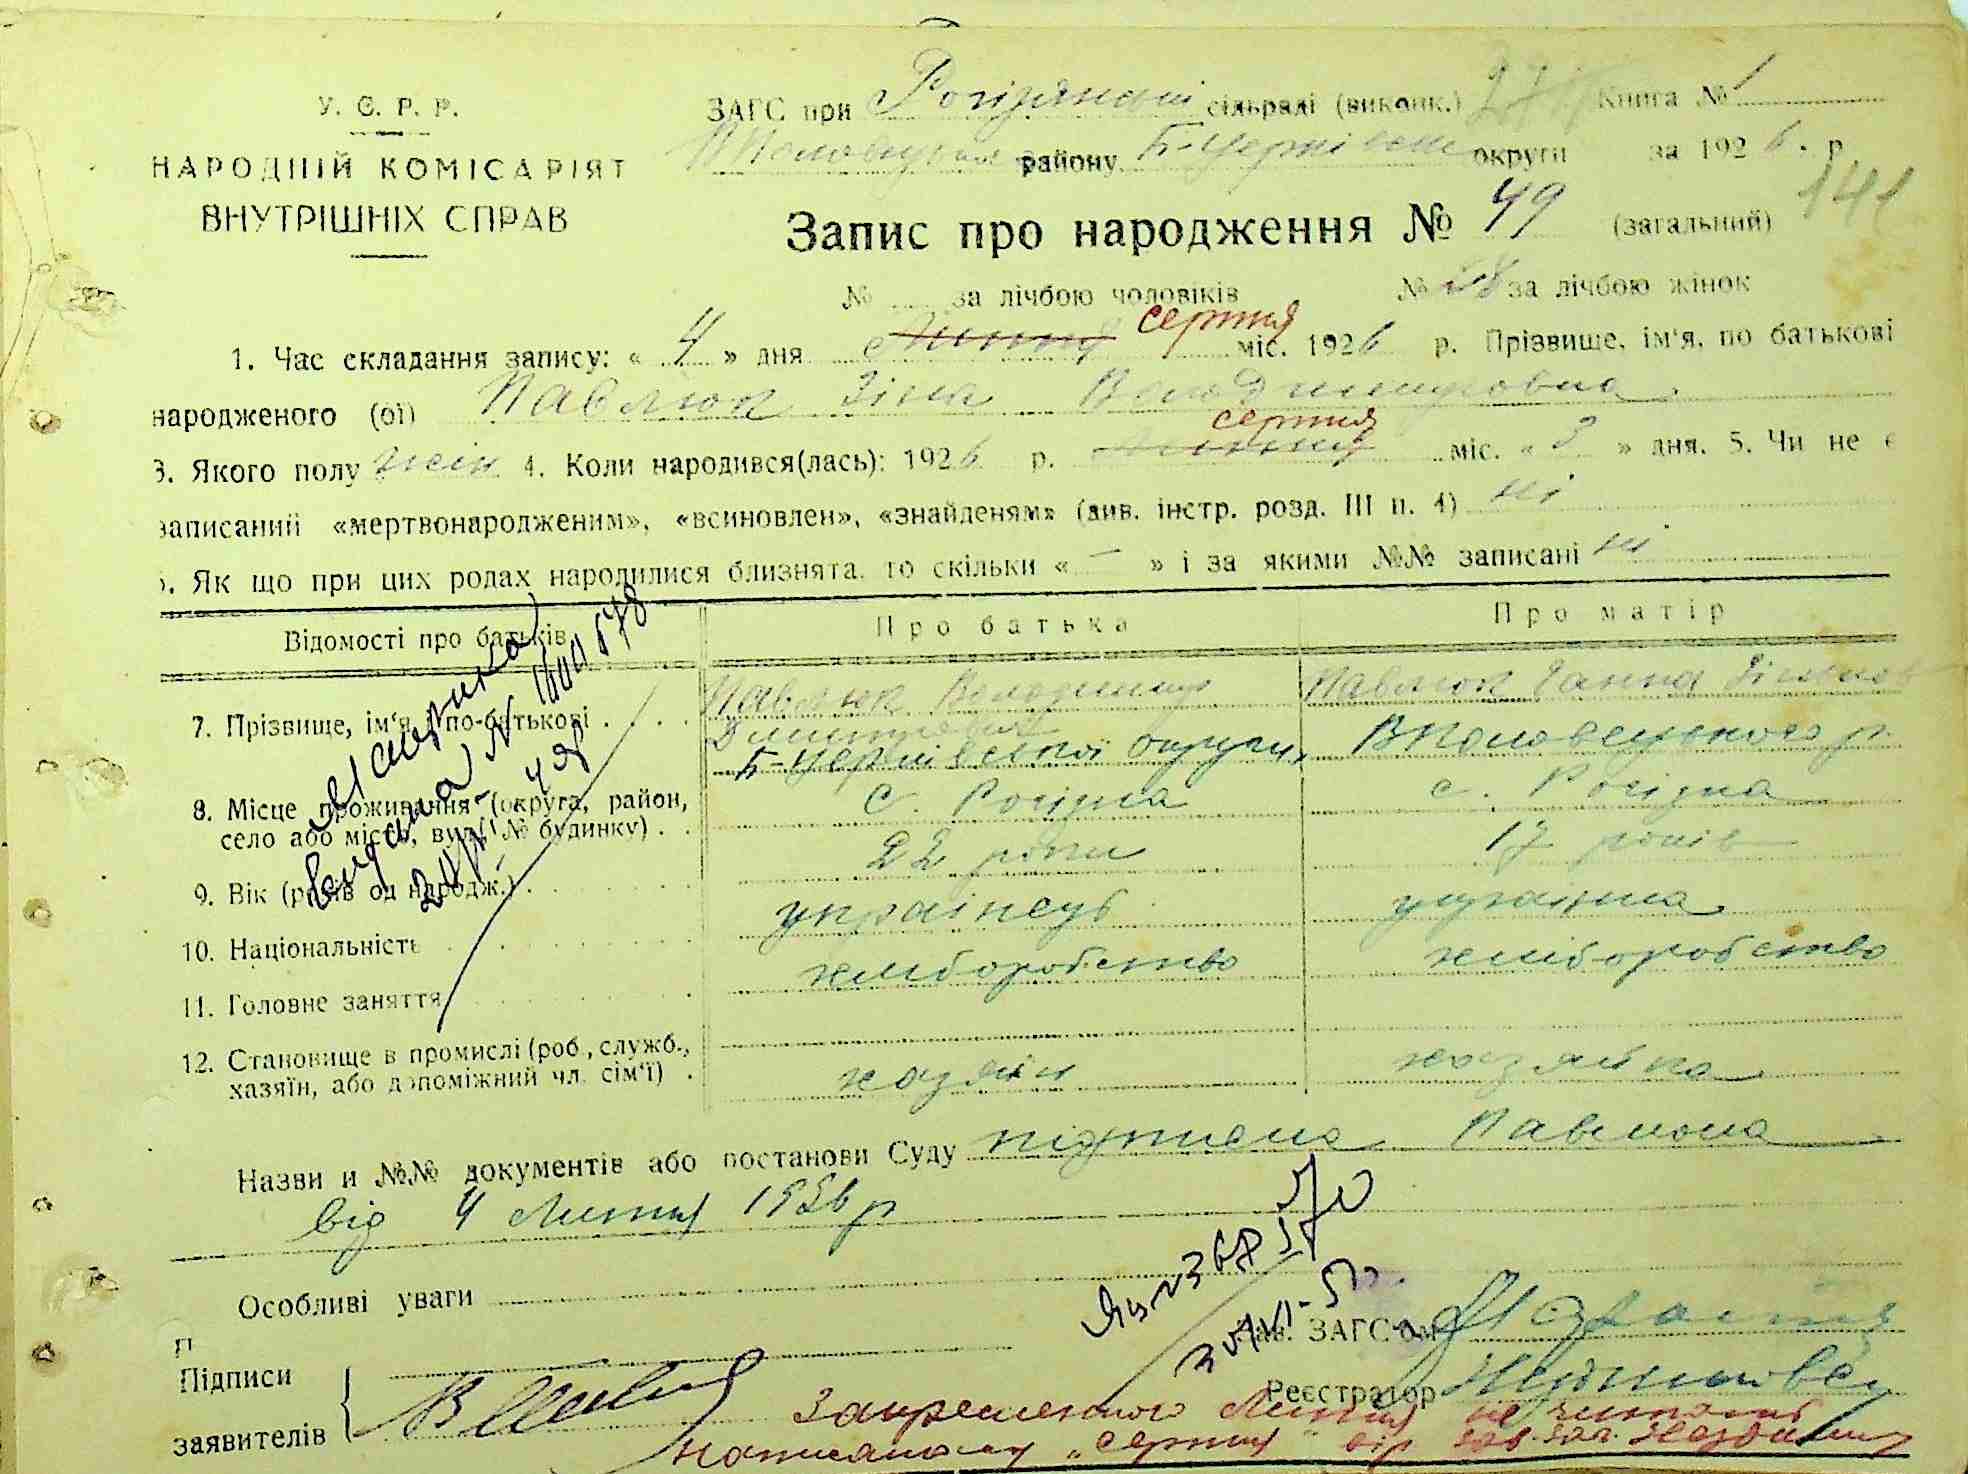 У. С. Р. Р.
НАРОДНІЙ КОМІСАРІЯТ
ВНУТРІШНІХ СПРАВ
ЗАГС при сільраді (виконк.) Книга № 1
району Б-Церківськ округи за 1926. р.
141
Запис про народження № 49 (загальний)
№ за лічбою чоловіків № 28 за лічбою жінок
серпня
1. Час складання запису: « 4 » дня Липня міс. 1926 р. Прізвище, ім'я, по батькові
народженого (ої) Павлюк Зіна Володимировна
серпня
3. Якого полу жін 4. Коли народився(лась): 1926 р. Липня міс. « 3 » дня. 5. Чи не є
записаний «мертвонародженим», «всиновлен», «знайденям» (див. інстр. розд. III п. 4) ні
6. Як що при цих родах народилися близнята, то скільки « — » і за якими №№ записані ні
Відомості про батьків Про батька Про матір
7. Прізвище, ім'я і по-батькові . . . . Павлюк Володимир Павлюк Ганна
Дмитрович
Б-Церківської округи, Вполовецького р.
8. Місце проживання (округа, район, с. Росішка с. Росішка
село або місто, вул., № будинку) . .
9. Вік (років од народж.) . 22 роки 17 років
10. Національність українець українка
11. Головне заняття хліборобство хліборобство
12. Становище в промислі (роб., служб.,
хазяїн, або допоміжний чл. сім'ї) . хазяїн хазяйка
Назви и №№ документів або постанови Суду підписка Павлюка
від 4 Липня 1926 р
Особливі уваги
Зав. ЗАГС'ом
П
Підписи
заявителів
Реєстратор
Закреслено Липня не читати
написаному „серпня" вір зав. заг.